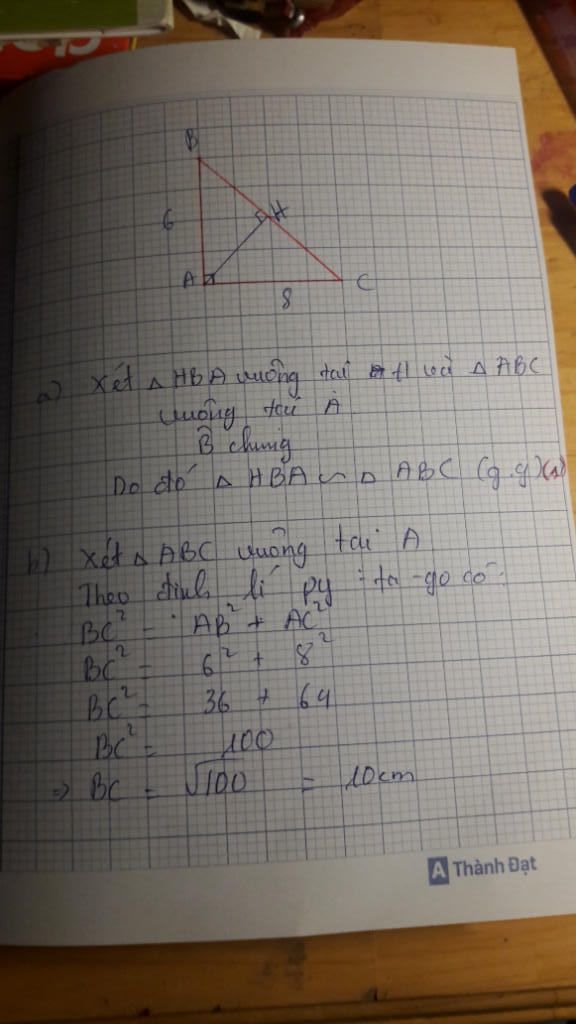 B
6
H
A
C
8
a) Xét △ HBA vuông tại H và △ ABC
vuông tại A
B̂ chung
Do đó △ HBA ∽ △ ABC (g.g) (1)
b) Xét △ ABC vuông tại A
Theo định lí py-ta-go có:
BC² = AB² + AC²
BC² = 6² + 8²
BC² = 36 + 64
BC² = 100
=> BC = √100 = 10cm
A Thành Đạt